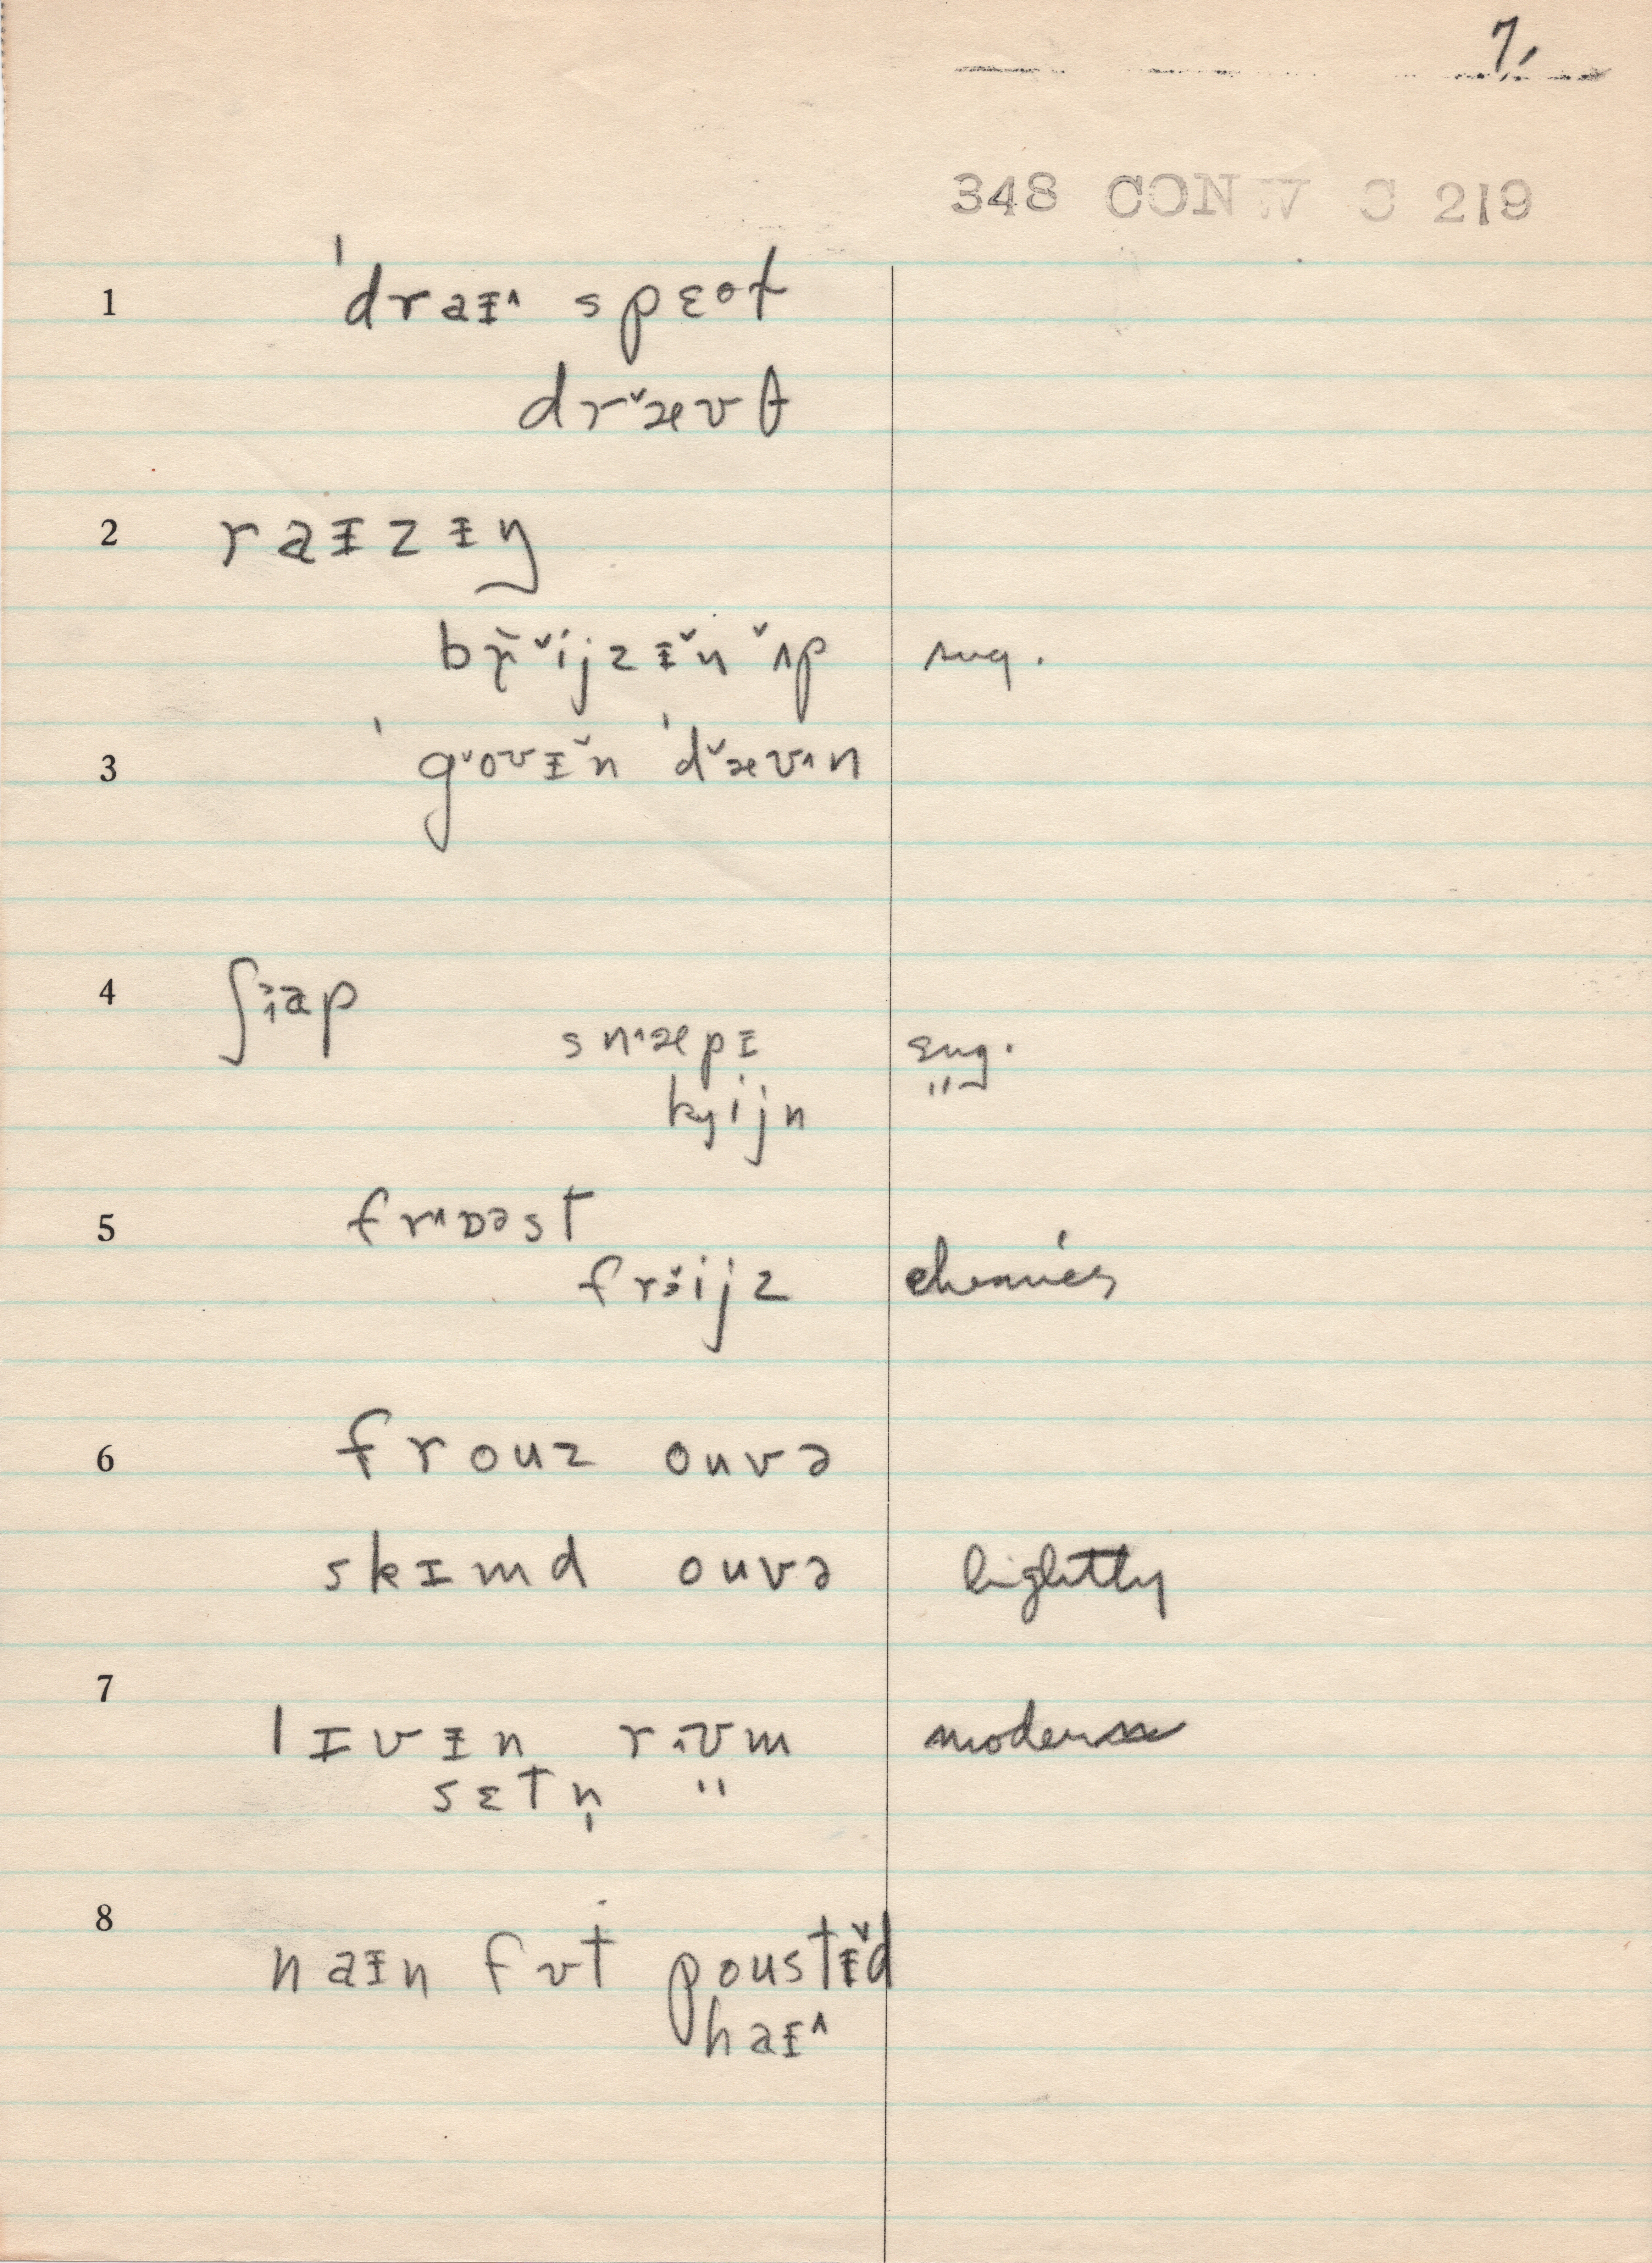 7,
348 CONW C 219
1 ˈdraɪ˄ spɛət
drˇæʊt
2 raɪzɨŋ
br̆ˇijzɨ̌n ˇʌp sug.
3 ˈgˇoʊɨ̌n ˈdˇæʊ˄n
4 ʃɜap
sn˄æpɪ sug.
kyijn "
5 fr˄ɒəst
frɜ̌ijz chemies
6 frouz ouvə
skɪmd ouvə lightly
7 lɪvɨn rʊm modern
sɛtn̩ "
8 naɪn fʊt poustɨ̌d
haɪ˄